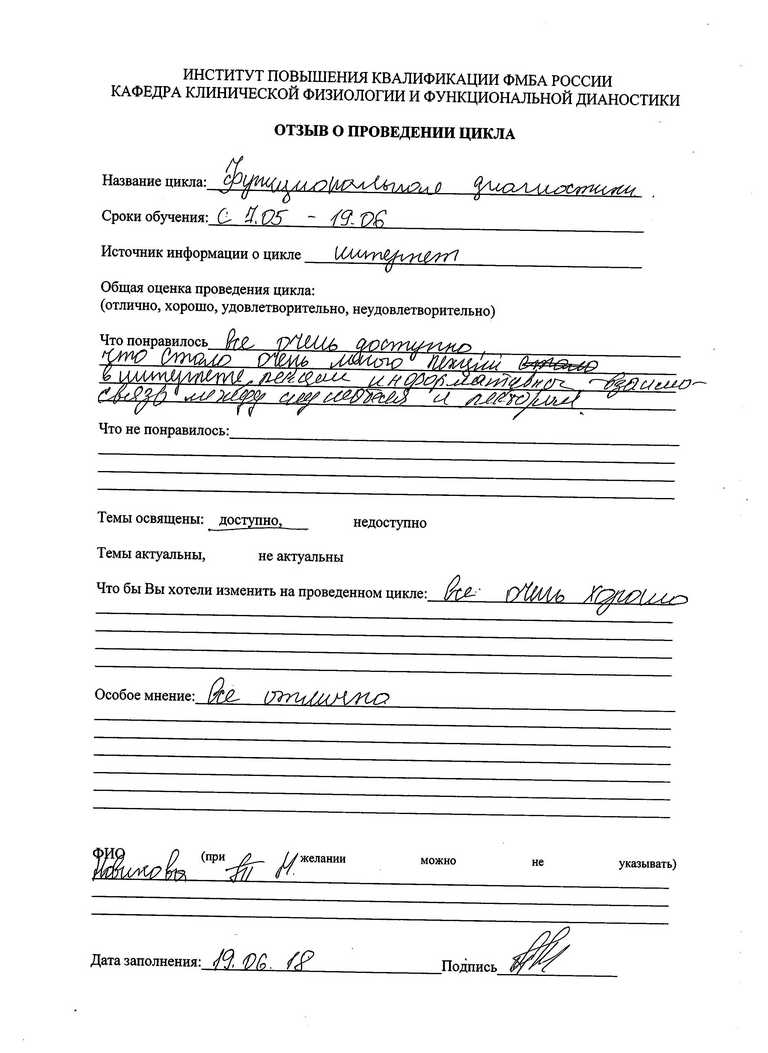 ИНСТИТУТ ПОВЫШЕНИЯ КВАЛИФИКАЦИИ ФМБА РОССИИ
КАФЕДРА КЛИНИЧЕСКОЙ ФИЗИОЛОГИИ И ФУНКЦИОНАЛЬНОЙ ДИАНОСТИКИ
ОТЗЫВ О ПРОВЕДЕНИИ ЦИКЛА
Название цикла: Функциональная диагностики.
Сроки обучения: С 7.05 - 19.06
Источник информации о цикле интернет
Общая оценка проведения цикла:
(отлично, хорошо, удовлетворительно, неудовлетворительно)
Что понравилось Все очень доступно,
что стало очень много лекций стало
в интернете, лекции информативной взаимо-
связь между и лектором.
Что не понравилось:
Темы освящены: доступно, недоступно
Темы актуальны, не актуальны
Что бы Вы хотели изменить на проведенном цикле: Все очень хорошо
Особое мнение: Все отлично
ФИО (при желании можно не указывать)
М.
Дата заполнения: 19.06.18 Подпись